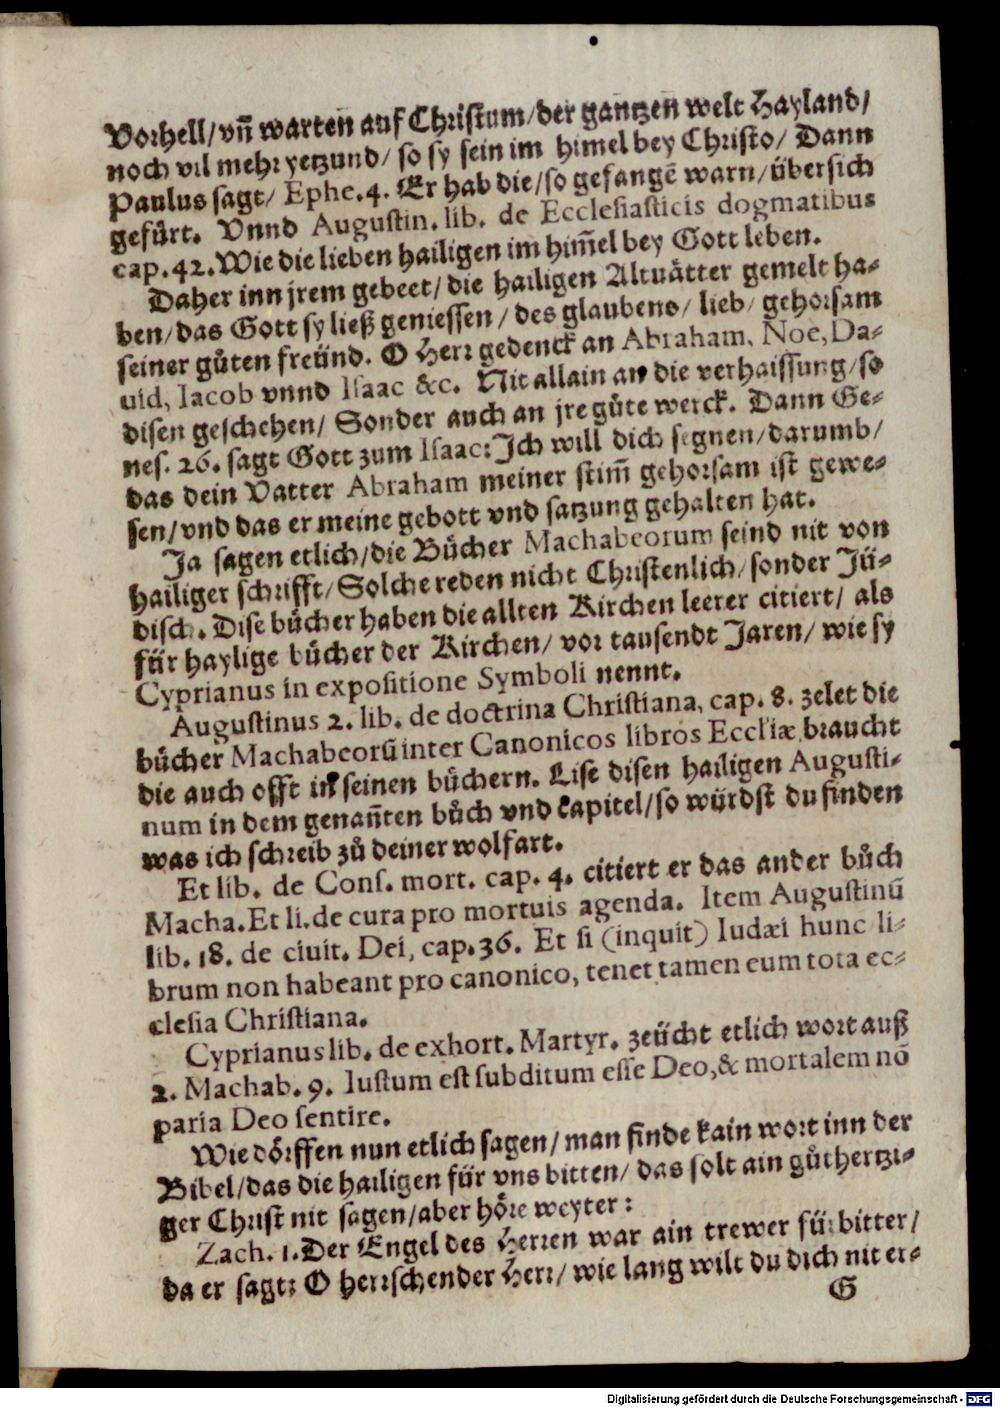 Vorhell/vn̄ warten auf Christum/der gantzen welt Hayland/
noch vil mehr yetzund/ so sy sein im himel bey Christo/ Dann
Paulus sagt/ Ephe.4. Er hab die/so gefangē warn/übersich
gefürt. Vnnd Augustin. lib. de Ecclesiasticis dogmatibus
cap.42.Wie die lieben hailigen im him̄el bey Gott leben.
Daher inn jrem gebeet/die hailigen Altuätter gemelt ha-
ben/das Gott sy ließ geniessen/des glaubens/ lieb/ gehorsam
seiner gůten freünd. O Herr gedenck an Abraham, Noe, Da-
uid, Iacob vnnd Isaac &c. Nit allain an die verhaissung/so
disen geschehen/ Sonder auch an jre gůte werck. Dann Ge-
nes. 26. sagt Gott zum Isaac: Ich will dich segnen/darumb/
das dein Vatter Abraham meiner stim̄ gehorsam ist gewe-
sen/vnd das er meine gebott vnd satzung gehalten hat.
Ja sagen etlich/die Bücher Machabeorum seind nit von
hailiger schrifft/Solche reden nicht Christenlich/sonder Jü-
disch. Dise bücher haben die allten Kirchen leerer citiert/ als
für haylige bücher der Kirchen/ vor tausendt Jaren/ wie sy
Cyprianus in expositione Symboli nennt.
Augustinus 2. lib. de doctrina Christiana, cap. 8. zelet die
bücher Machabeorū inter Canonicos libros Eccl'iæ, braucht
die auch offt in seinen büchern. Lise disen hailigen Augusti-
num in dem genan̄ten bůch vnd kapitel/so würdst du finden
was ich schreib zů deiner wolfart.
Et lib. de Cons. mort. cap. 4. citiert er das ander bůch
Macha. Et li. de cura pro mortuis agenda. Item Augustinū
lib. 18. de ciuit. Dei, cap. 36. Et si (inquit) Iudæi hunc li-
brum non habeant pro canonico, tenet tamen eum tota ec-
clesia Christiana.
Cyprianus lib. de exhort. Martyr. zeücht etlich wort auß
2. Machab. 9. Iustum est subditum esse Deo, & mortalem nō
paria Deo sentire.
Wie dörffen nun etlich sagen/man finde kain wort inn der
Bibel/das die hailigen für vns bitten/ das solt ain gůthertzi-
ger Christ nit sagen/aber höre weyter:
Zach. 1. Der Engel des Herren war ain trewer fürbitter/
da er sagt: O herrschender Herr/ wie lang wilt du dich nit er-
G
Digitalisierung gefördert durch die Deutsche Forschungsgemeinschaft - DFG